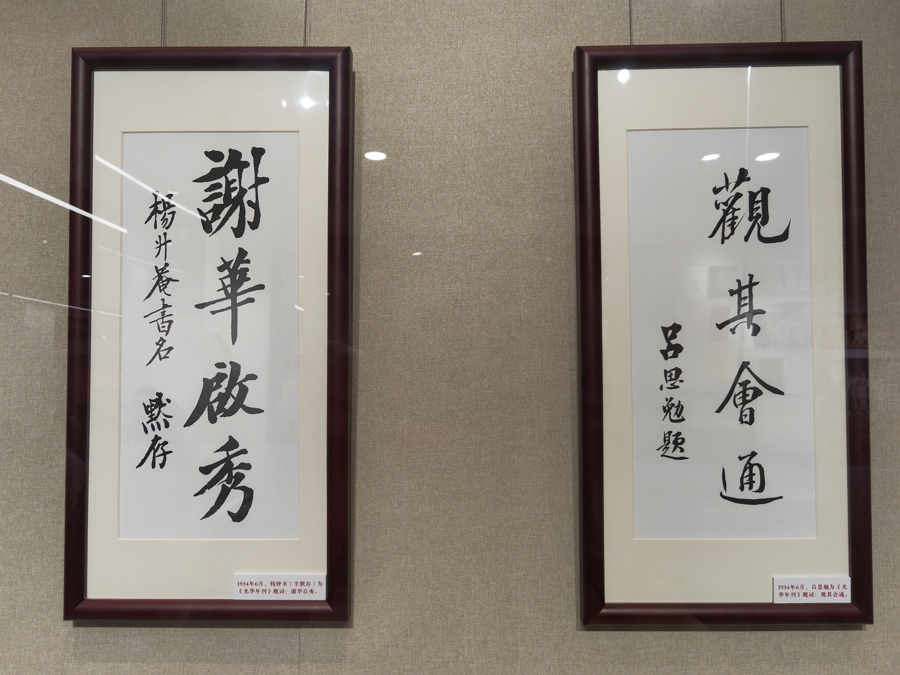 謝華啟秀
楊升菴書名 默存
1934年6月，钱钟书（字默存）为
《光华年刊》题词：谢华启秀。
觀其會通
吕思勉題
1934年6月，吕思勉为《光
华年刊》题词：观其会通。